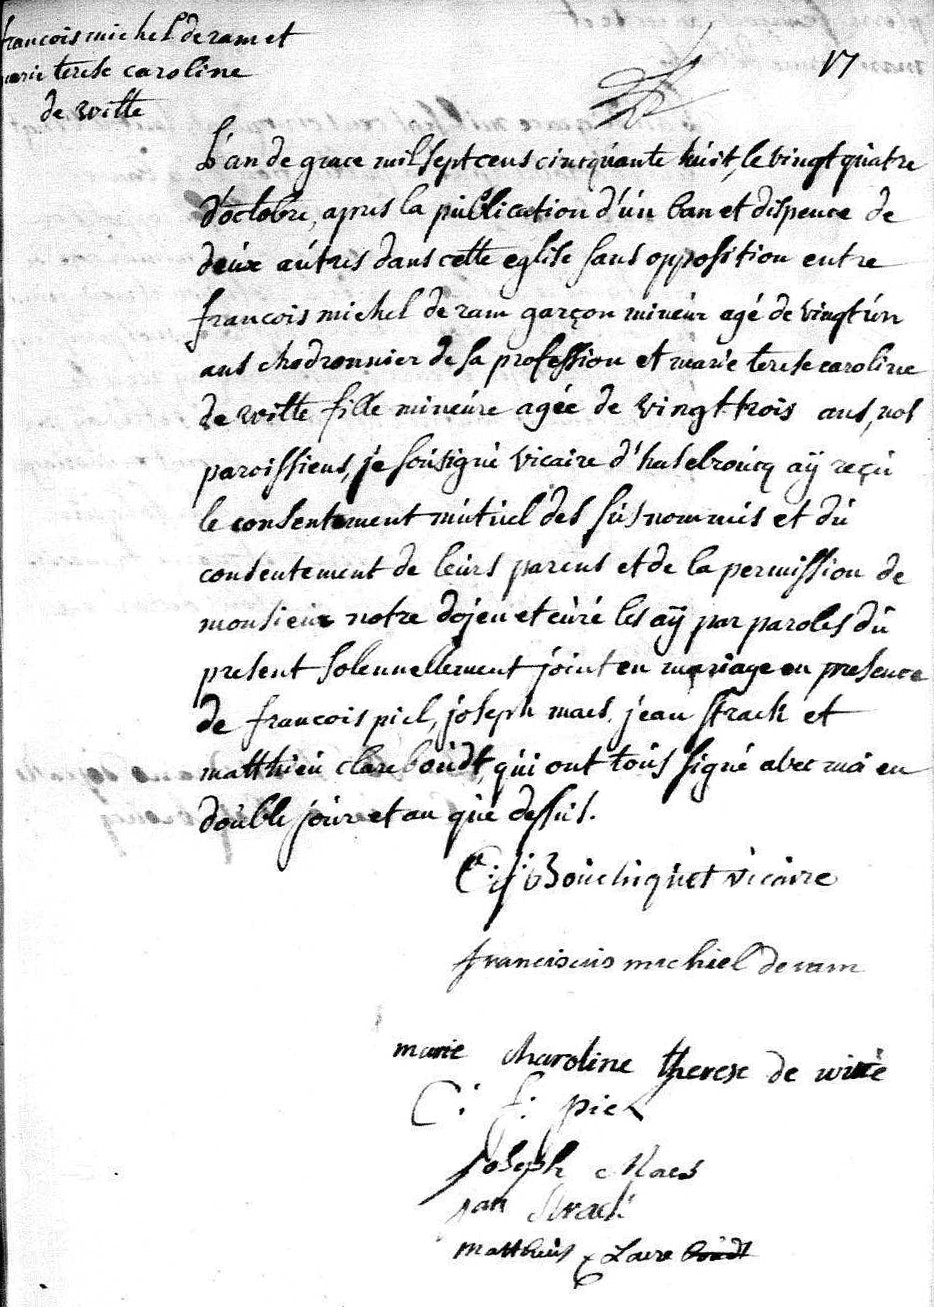 francois michel deram et
marie terese caroline
de witte
17
L'an de grace mil sept cens cincquante húit, le vingt quatre
d'octobre, apres la públication d'ún ban et dispence de
deúx aútres dans cette eglise sans opposition entre
francois michel de ram garçon minéur agé de vingt ún
ans chodronnier de sa profession et marie terese caroline
de witte fille mineúre agée de vingt trois ans, nos
paroissiens, je soúsigné vicaire d'hasebroúcq aÿ reçú
le consentement mútúel des súsnommés et dú
consentement de leúrs parens et de la permission de
monsieúr notre dojen et cúré les aÿ par paroles dú
present solennellement joint en mariage en presence
de francois piel, joseph maes, jean strack et
matthieú clareboúdt, qúi ont toús signé avec moi en
doúble joúr et an qúe dessús.
C: f: Boúchiqúet vicaire
franciscus michiel deram
marie charoline therese de witte
C: f: piel
Joseph Maes
jan Strack
mattheús Clareboúdt